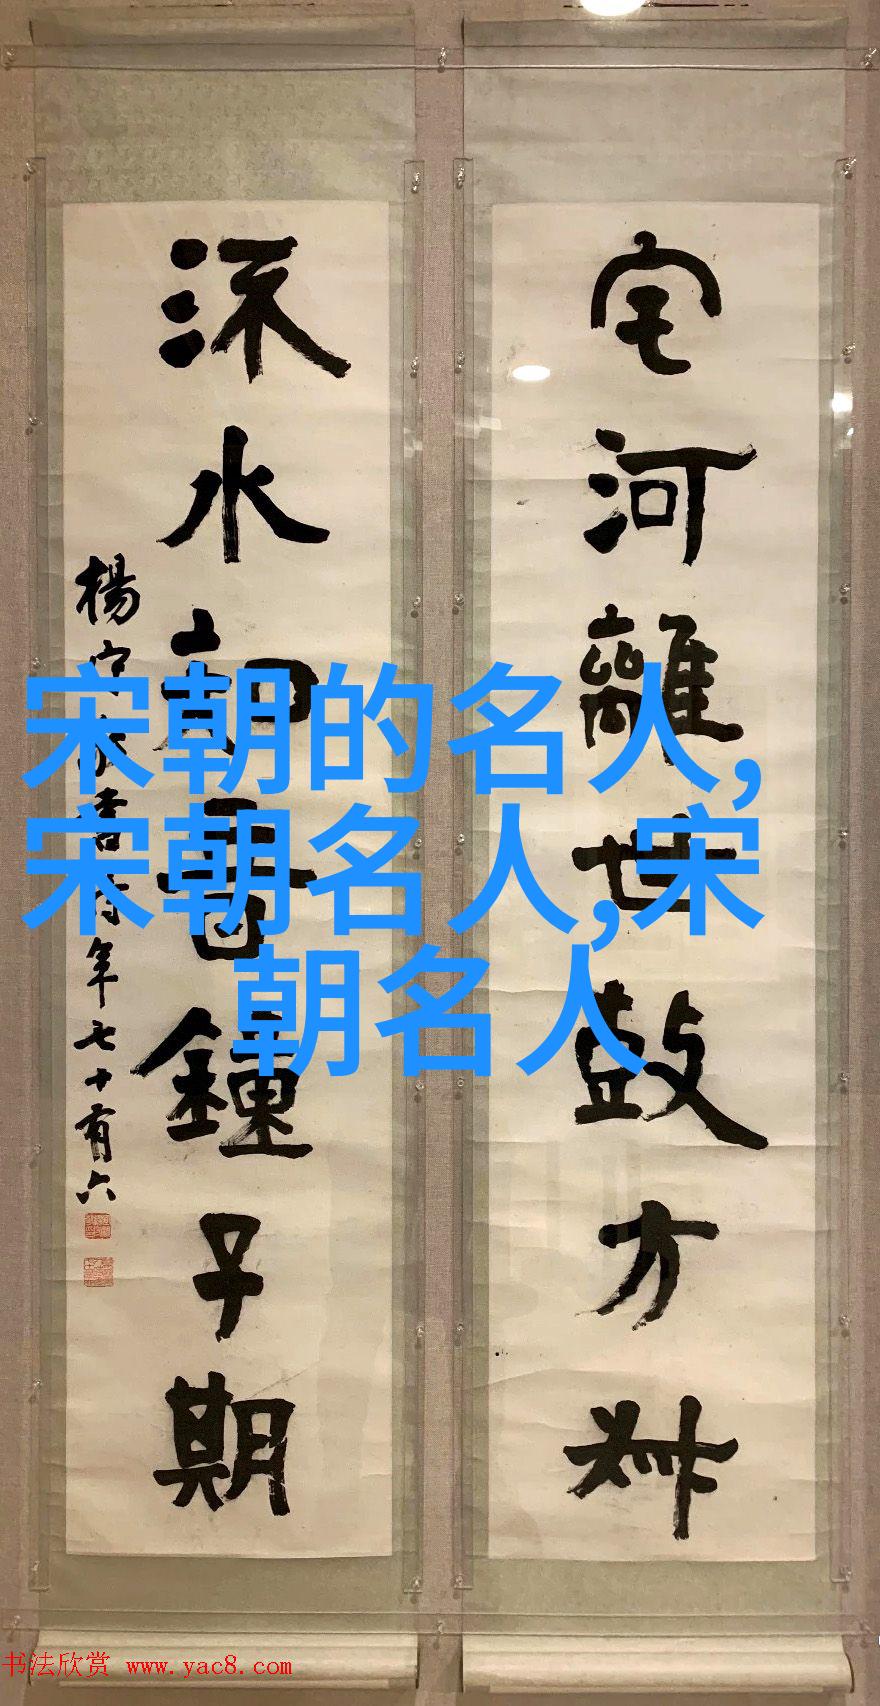 宅河離世鼓方叔
㳅水知音鍾子期
楊守敬書時年七十有六
宋朝的名人,
宋朝名人,宋
朝名人
书法欣赏 www.yac8.com